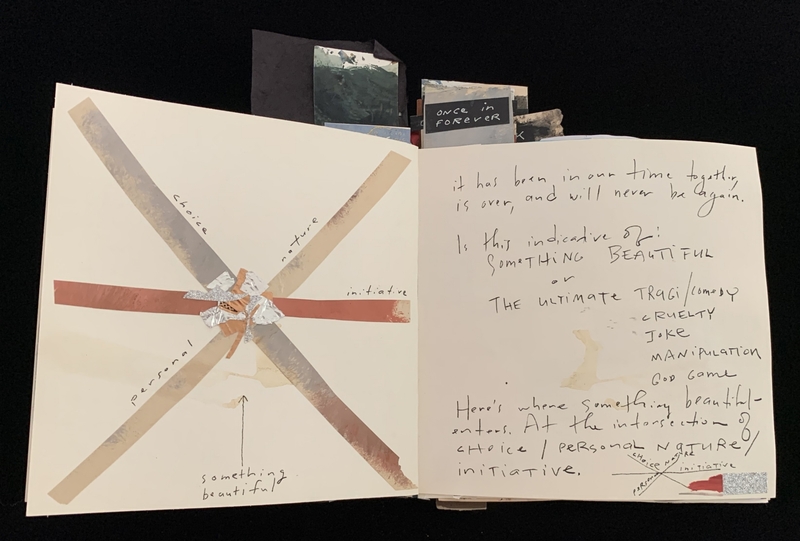 once in
FOREVER
choice
nature
initiative
personal
something
beautiful
it has been in our time together,
is over, and will never be again.
Is this indicative of:
SOMETHING BEAUTIFUL
or
THE ULTIMATE TRAGI/COMEDY
CRUELTY
JOKE
MANIPULATION
GOD GAME
Here's where something beautiful-
enters. At the intersection of
CHOICE / PERSONAL NATURE /
INITIATIVE.
CHOICE NATURE
initiative
PERSONAL